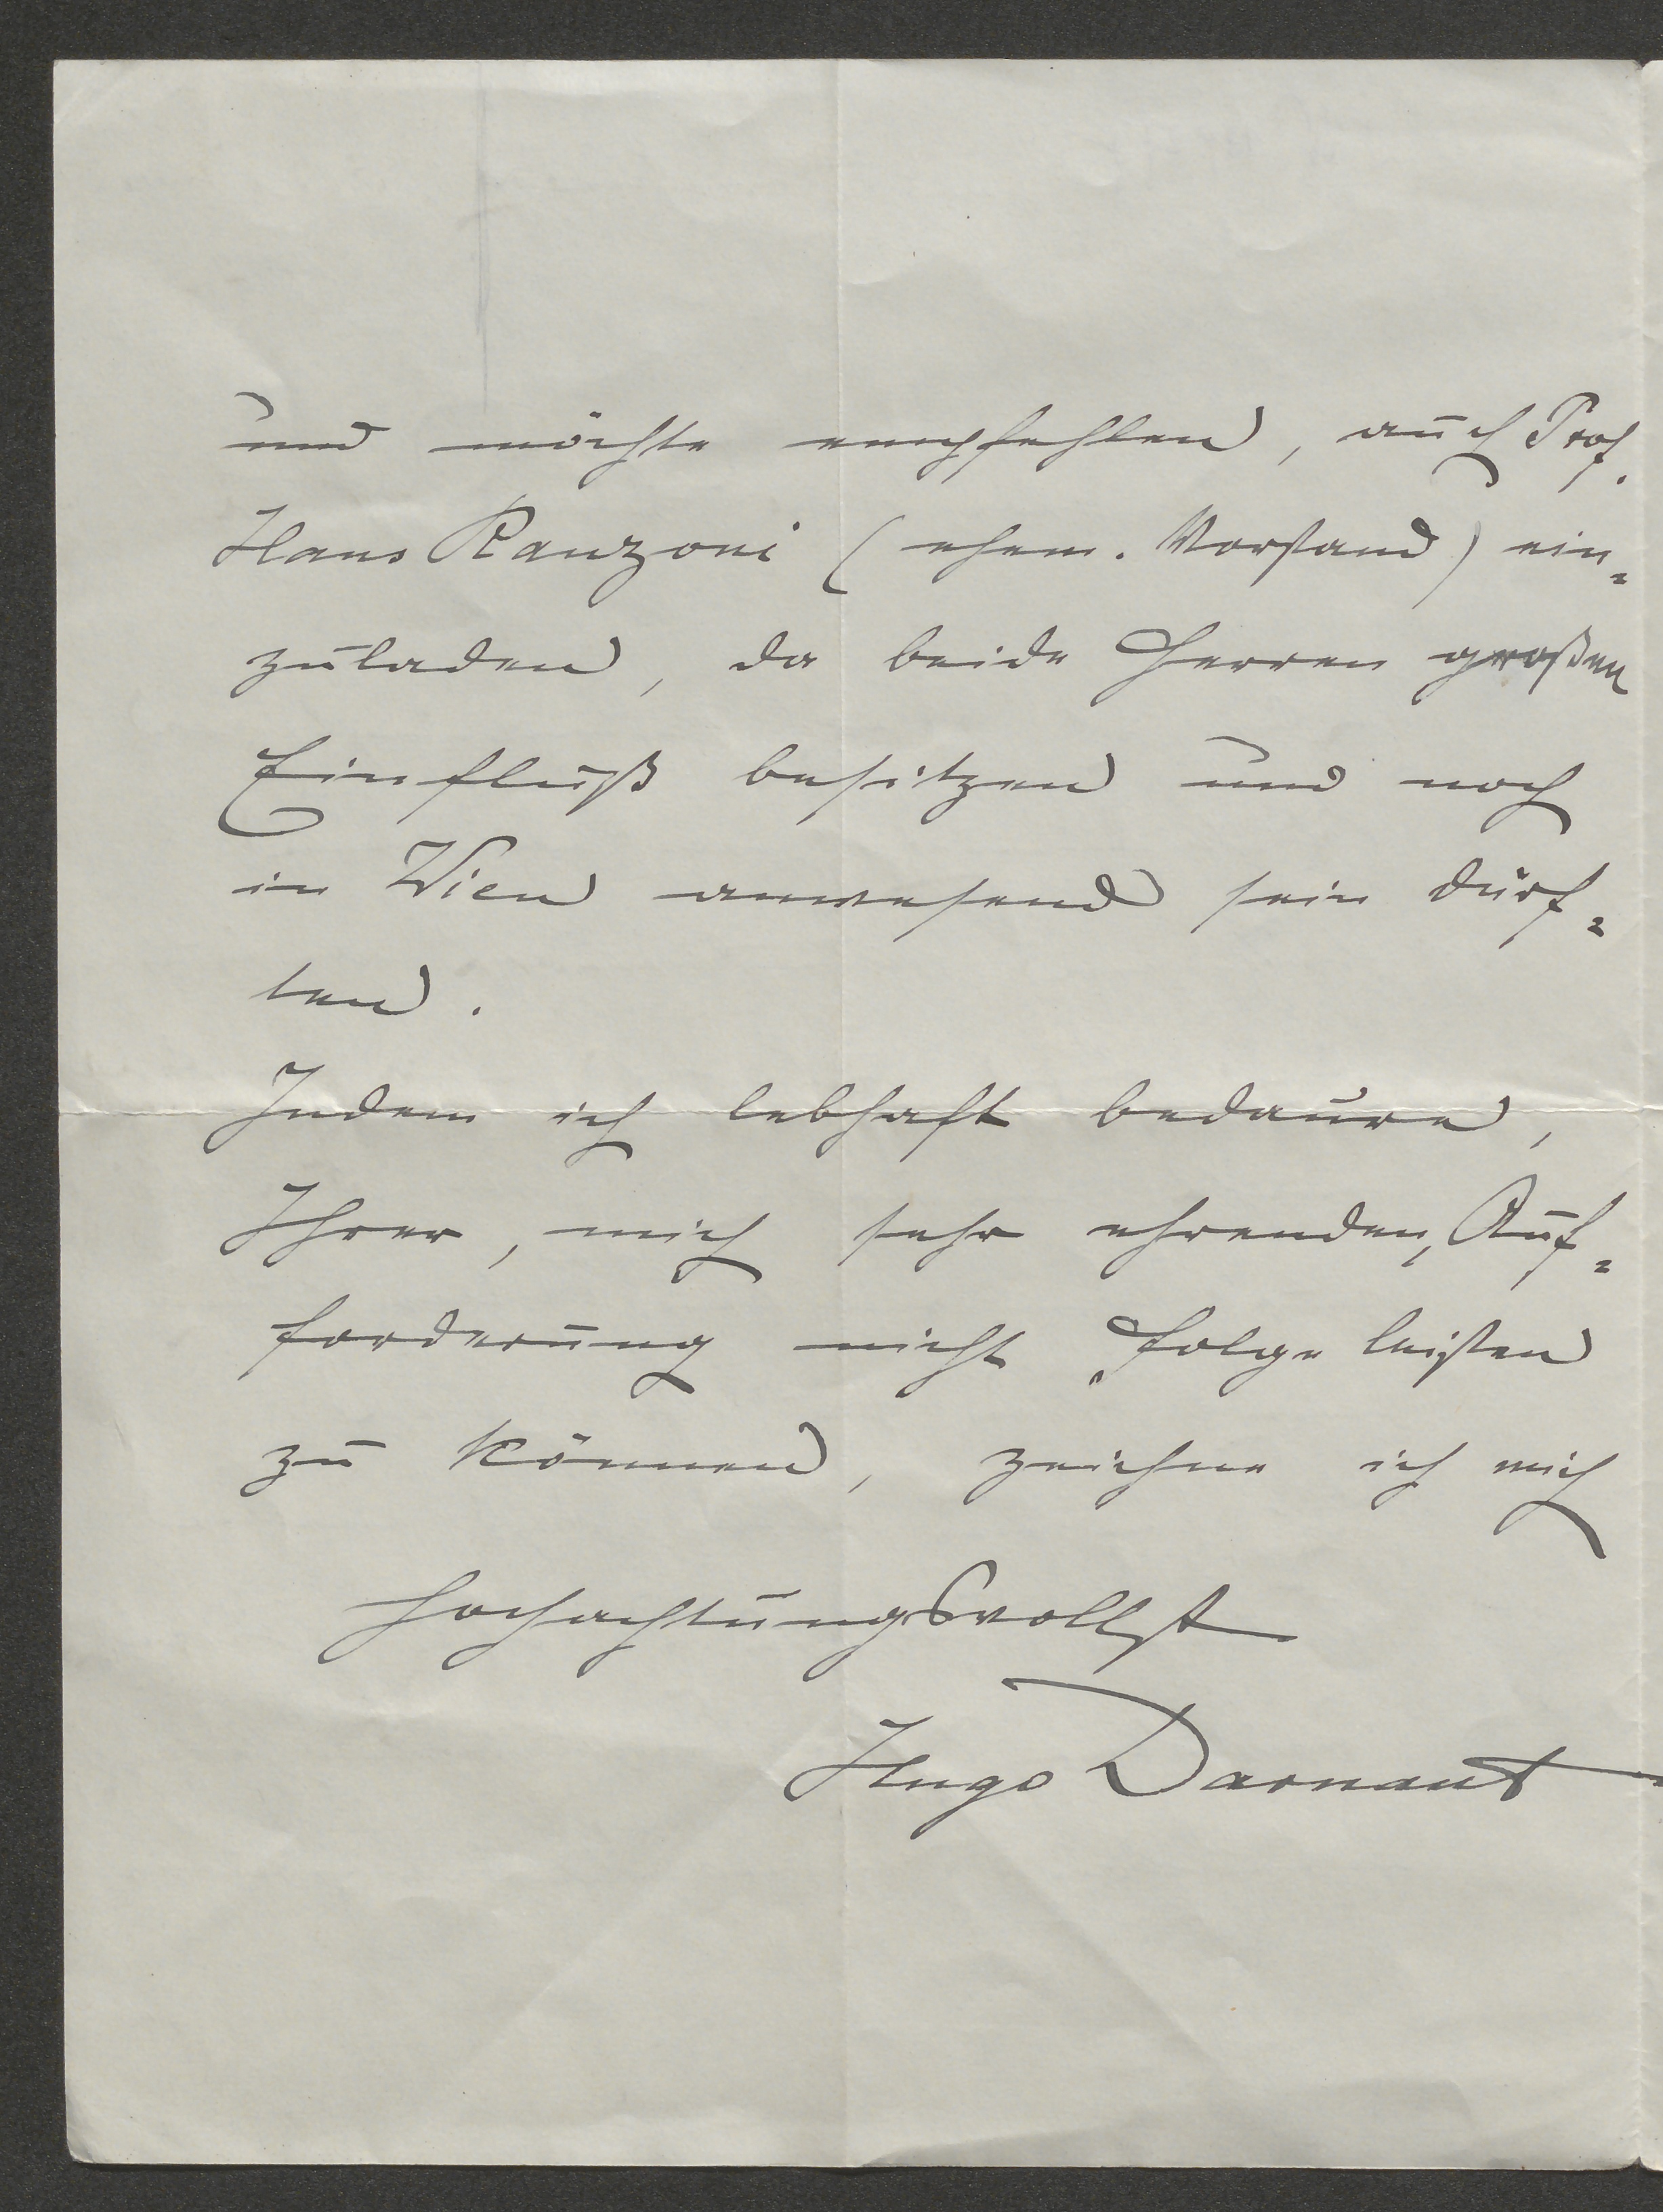 und möchte empfehlen, auch Prof.
Hans Ranzoni (ehem. Vorstand) ein=
zuladen, da beide Herren großen
Einfluß besitzen und noch
in Wien anwesend sein dürf=
ten.
Indem ich lebhaft bedaure,
Ihrer, mich sehr ehrenden, Auf=
forderung nicht Folge leisten
zu können, zeichne ich mich
hochachtungsvollst
Hugo Darnaut